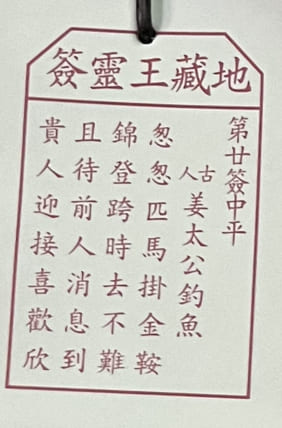 地藏王靈簽
第廿簽中平
古人姜太公釣魚
怱怱匹馬掛金鞍
錦登跨時去不難
且待前人消息到
貴人迎接喜歡欣